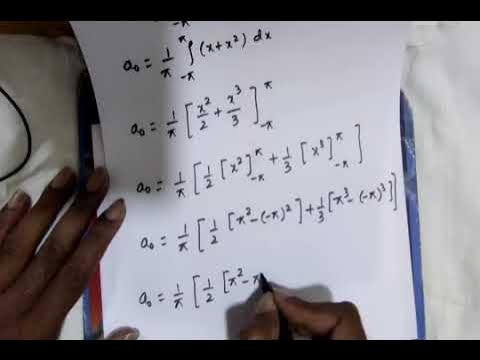 -π
a₀ = 1/π ∫_{-π}^{π} (x+x²) dx
a₀ = 1/π [x²/2 + x³/3]_{-π}^{π}
a₀ = 1/π [1/2 [x²]_{-π}^{π} + 1/3 [x³]_{-π}^{π}]
a₀ = 1/π [1/2 [π² - (-π)²] + 1/3 [π³ - (-π)³]]
a₀ = 1/π [1/2 [π² - π